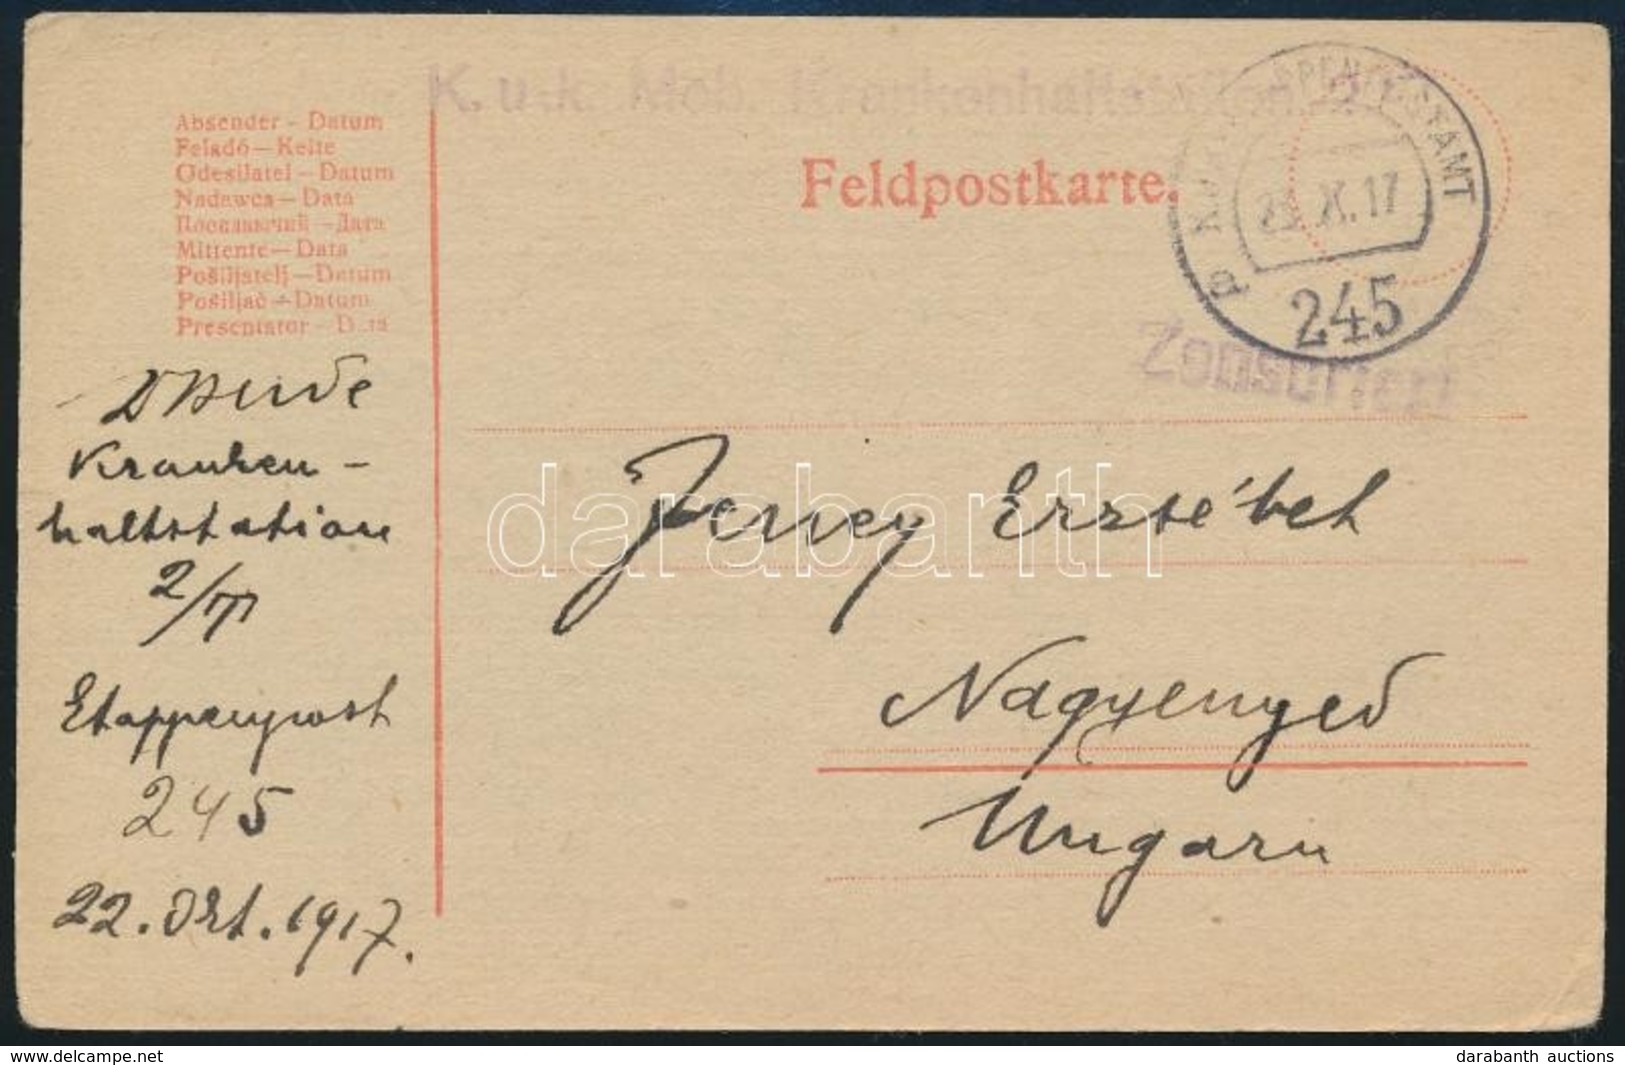 K. u. k. Mob. Krankenhaltstation
Absender - Datum
Feladó—Kelte
Odesílatel - Datum
Nadawca - Data
Посилаючий - Дата
Mittente - Data
Pošiljatelj - Datum
Pošiljač - Datum
Presentator - Data
Feldpostkarte.
K.u.K. ETAPPENPOSTAMT
X. 17
245
Zensuriert
Kranken-
haltstation
2/
Etappenpost
245
22. Okt. 1917.
Jeney Erzsébet
Nagyenyed
Ungarn
darabanth
www.darabanth.com
darabanth auctions